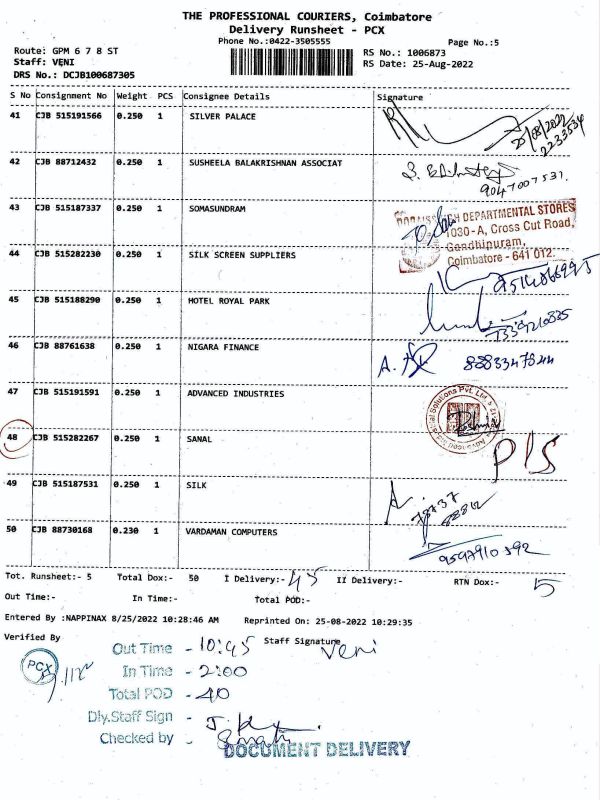 THE PROFESSIONAL COURIERS, Coimbatore
Delivery Runsheet - PCX
Phone No.:0422-3505555
Page No.:5
Route: GPM 6 7 8 ST
RS No.: 1006873
Staff: VENI
RS Date: 25-Aug-2022
DRS No.: DCJB100687305
S No Consignment No Weight PCS Consignee Details Signature
41 CJB 515191566 0.250 1 SILVER PALACE
25/08/2022
2233534
42 CJB 88712432 0.250 1 SUSHEELA BALAKRISHNAN ASSOCIAT
9047007531.
43 CJB 515187337 0.250 1 SOMASUNDRAM
DEPARTMENTAL STORES
1030-A, Cross Cut Road,
Gandhipuram,
Coimbatore - 641 012.
44 CJB 515282230 0.250 1 SILK SCREEN SUPPLIERS
45 CJB 515188290 0.250 1 HOTEL ROYAL PARK
46 CJB 88761638 0.250 1 NIGARA FINANCE
47 CJB 515191591 0.250 1 ADVANCED INDUSTRIES
Solutions Pvt. Ltd
48 CJB 515282267 0.250 1 SANAL
P/S
49 CJB 515187531 0.250 1 SILK
78737
88812
50 CJB 88730168 0.230 1 VARDAMAN COMPUTERS
9597910392
Tot. Runsheet:- 5 Total Dox:- 50 I Delivery:- 45 II Delivery:- RTN Dox:- 5
Out Time:- In Time:- Total POD:-
Entered By :NAPPINAX 8/25/2022 10:28:46 AM Reprinted On: 25-08-2022 10:29:35
Verified By Staff Signature Veni
PCX
Out Time - 10:45
In Time - 2:00
Total POD - 40
Dly.Staff Sign -
Checked by -
DOCUMENT DELIVERY